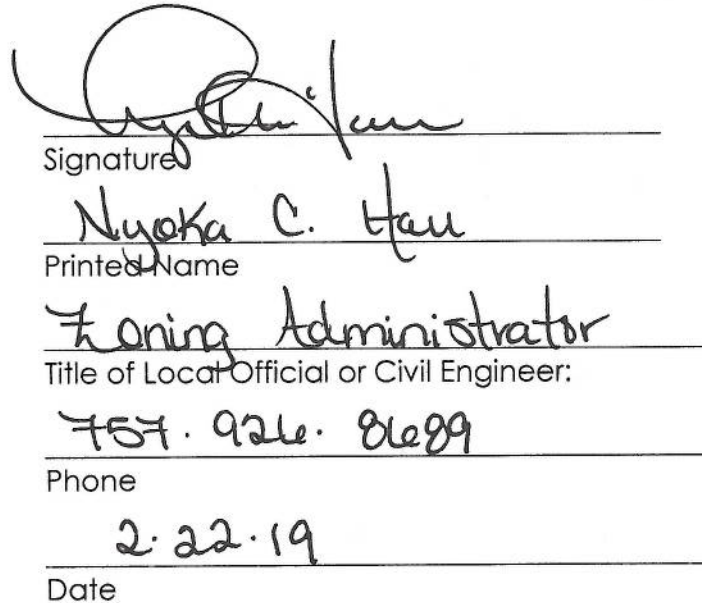 Signature
Nyoka C. Hall
Printed Name
Zoning Administrator
Title of Local Official or Civil Engineer:
757. 926. 8689
Phone
2.22.19
Date